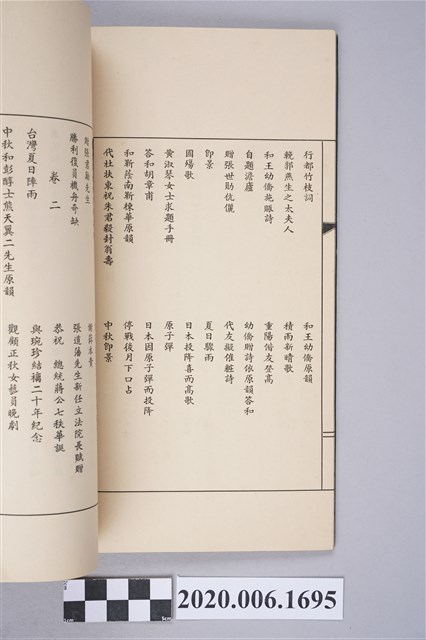 行都竹枝詞
和王幼僑原韻
輓郭燕生之太夫人
積雨新晴歌
和王幼僑施賑詩
重陽偕友登高
自題澹廬
幼僑贈詩依原韻答和
贈張世勛伉儷
代友擬催粧詩
即景
夏日驟雨
圃場歌
日本投降喜而高歌
黃淑琴女士求題手冊
原子彈
答和胡章甫
日本因原子彈而投降
和靳蔭南新棟華原韻
停戰後月下口占
代杜扶東祝朱君毅封翁壽
中秋即景
先生
勝利復員機舟奇缺
張道藩先生新任立法院長賦贈
卷二
恭祝 總統蔣公七秩華誕
台灣夏日陣雨
與琬珍結褵二十年紀念
中秋和彭醇士熊天翼二先生原韻
觀顧正秋女藝員晚劇
2020.006.1695